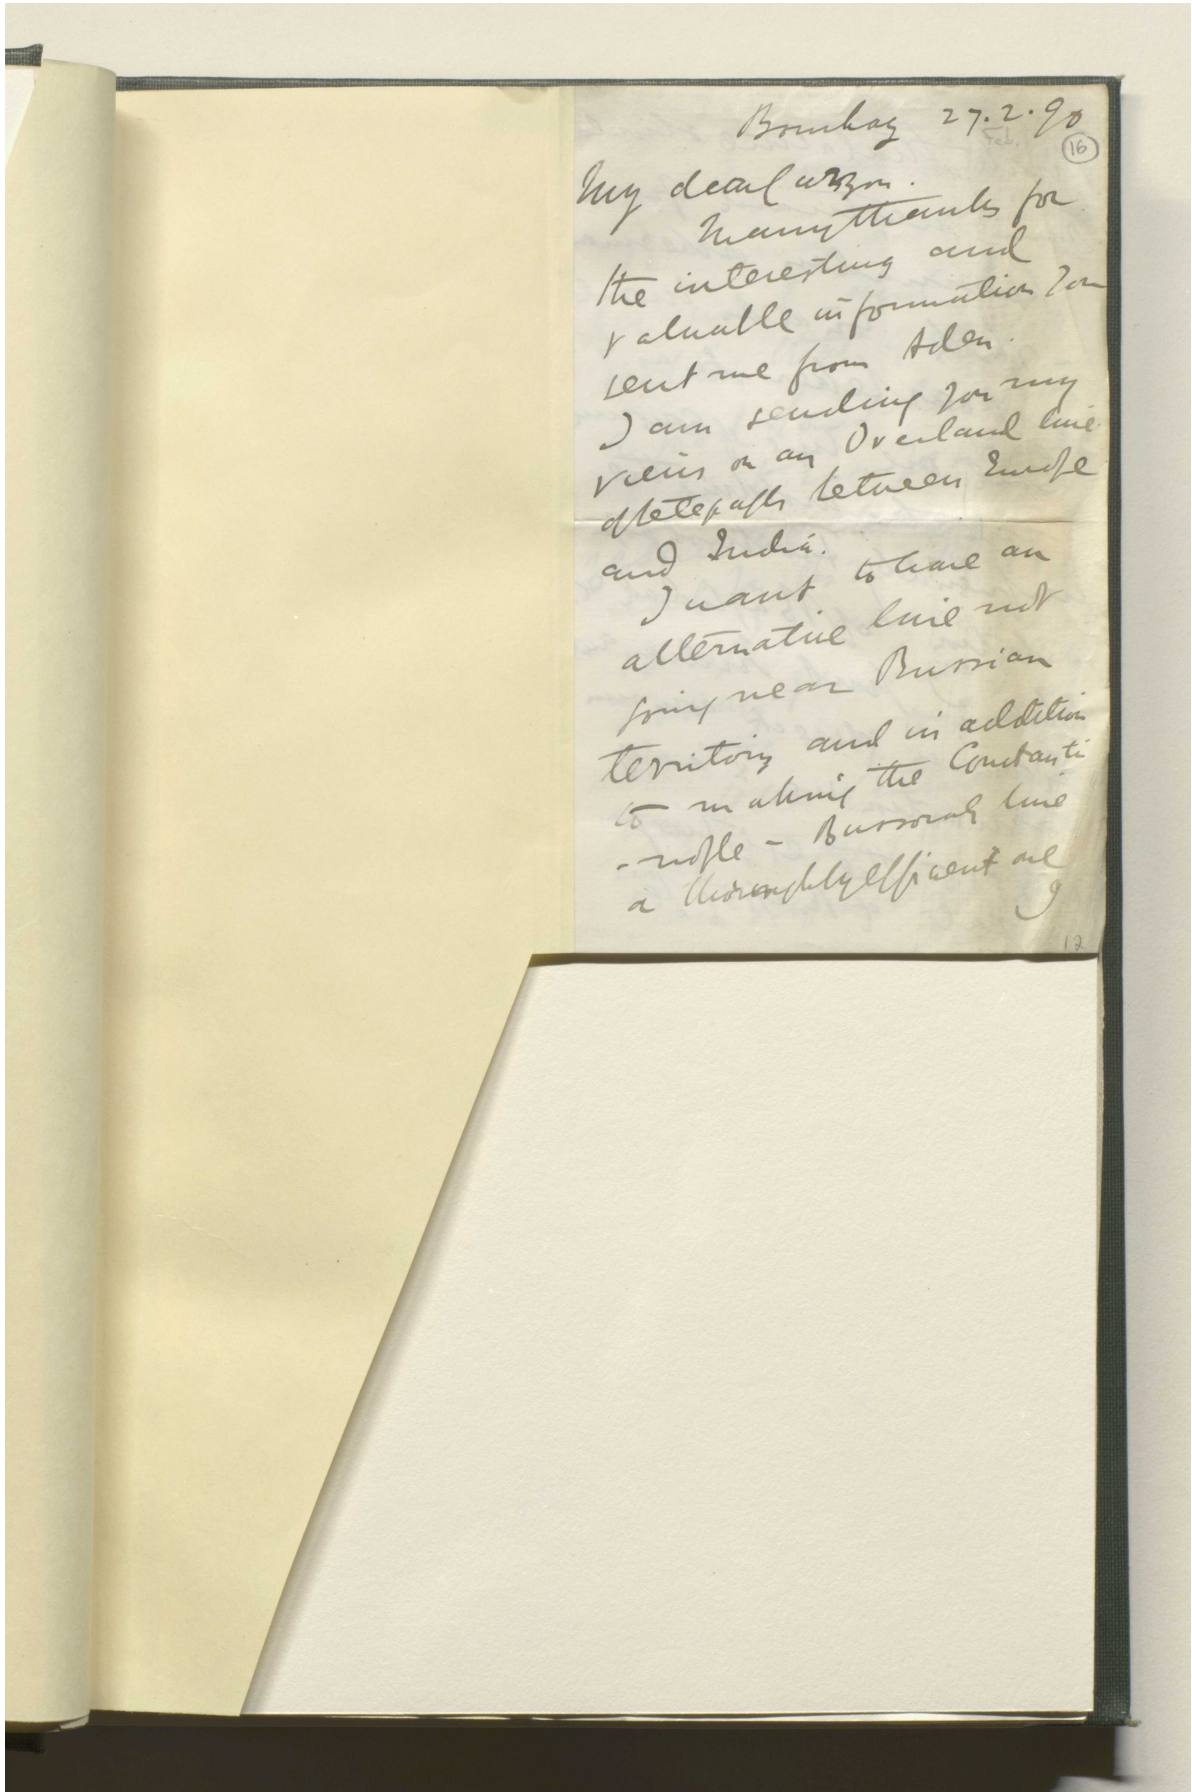 Bombay 27.2.90
Feb.
16
My dear Curzon.
Many thanks for
the interesting and
valuable information you
sent me from Aden.
I am sending you my
views on an Overland line
of telegraph between Europe
and India.
I want to have an
alternative line not
going near Russian
territory and in addition
to making the Constanti
-nople - Bussorah line
a thoroughly efficient one
I
12